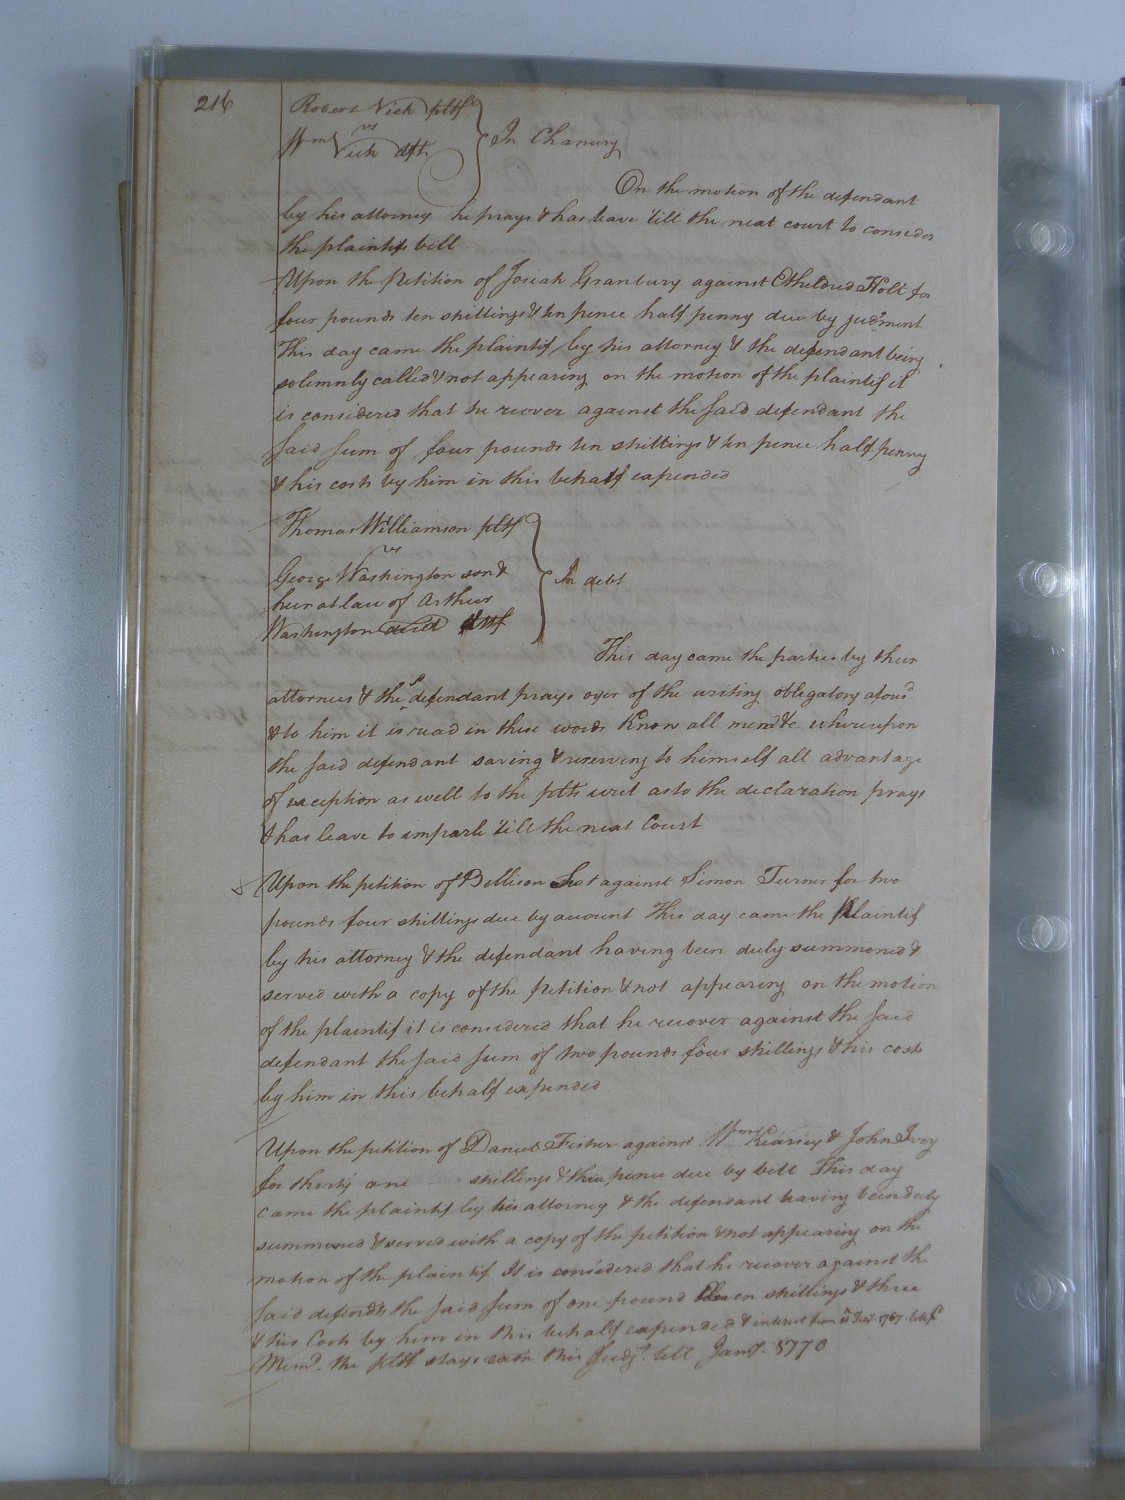 216
Robert Vick pltf
vs
Wm Vick dft
In Chancery
On the motion of the defendant
by his attorney he prays & has leave 'till the next court to consider
the plaintifs bill
Upon the Petition of Josiah Granbury against Etheldred Holt for
four pounds ten shillings & ten pence half penny due by judgment
This day came the plaintif by his attorney & the defendant being
solemnly called & not appearing on the motion of the plaintif it
is considered that he recover against the said defendant the
said sum of four pounds ten shillings & ten pence half penny
& his costs by him in this behalf expended
Thomas Williamson pltf
vs
George Washington son &
heir at law of Arthur
Washington decd
In debt
This day came the parties by their
attornies & the defendant prays oyer of the writing obligatory afousd.
& to him it is read in these words Know all men &c whereupon
the said defendant saving & reserving to himself all advantage
of exception as well to the plts writ as to the declaration prays
& has leave to imparle 'till the next Court
Upon the petition of against Simon Turner for two
pounds four shillings due by account This day came the Plaintif
by his attorney & the defendant having been duly summoned &
served with a copy of the petition & not appearing on the motion
of the plaintif it is considered that he recover against the said
defendant the said sum of two pounds four shillings & his costs
by him in this behalf expended
Upon the petition of Daniel Fisher against Wm Kearsey & John Ivey
for thirty one shillings & three pence due by bill This day
came the plaintif by his attorney & the defendant having been duly
summoned & served with a copy of the petition & not appearing on the
motion of the plaintif It is considered that he recover against the
said defendts the said sum of one pound Eleven shillings & three
& his Costs by him in this behalf expended & interest from 1767 till pd
Memo. the pltf stays exōn this Judgt. till Jany. 1770